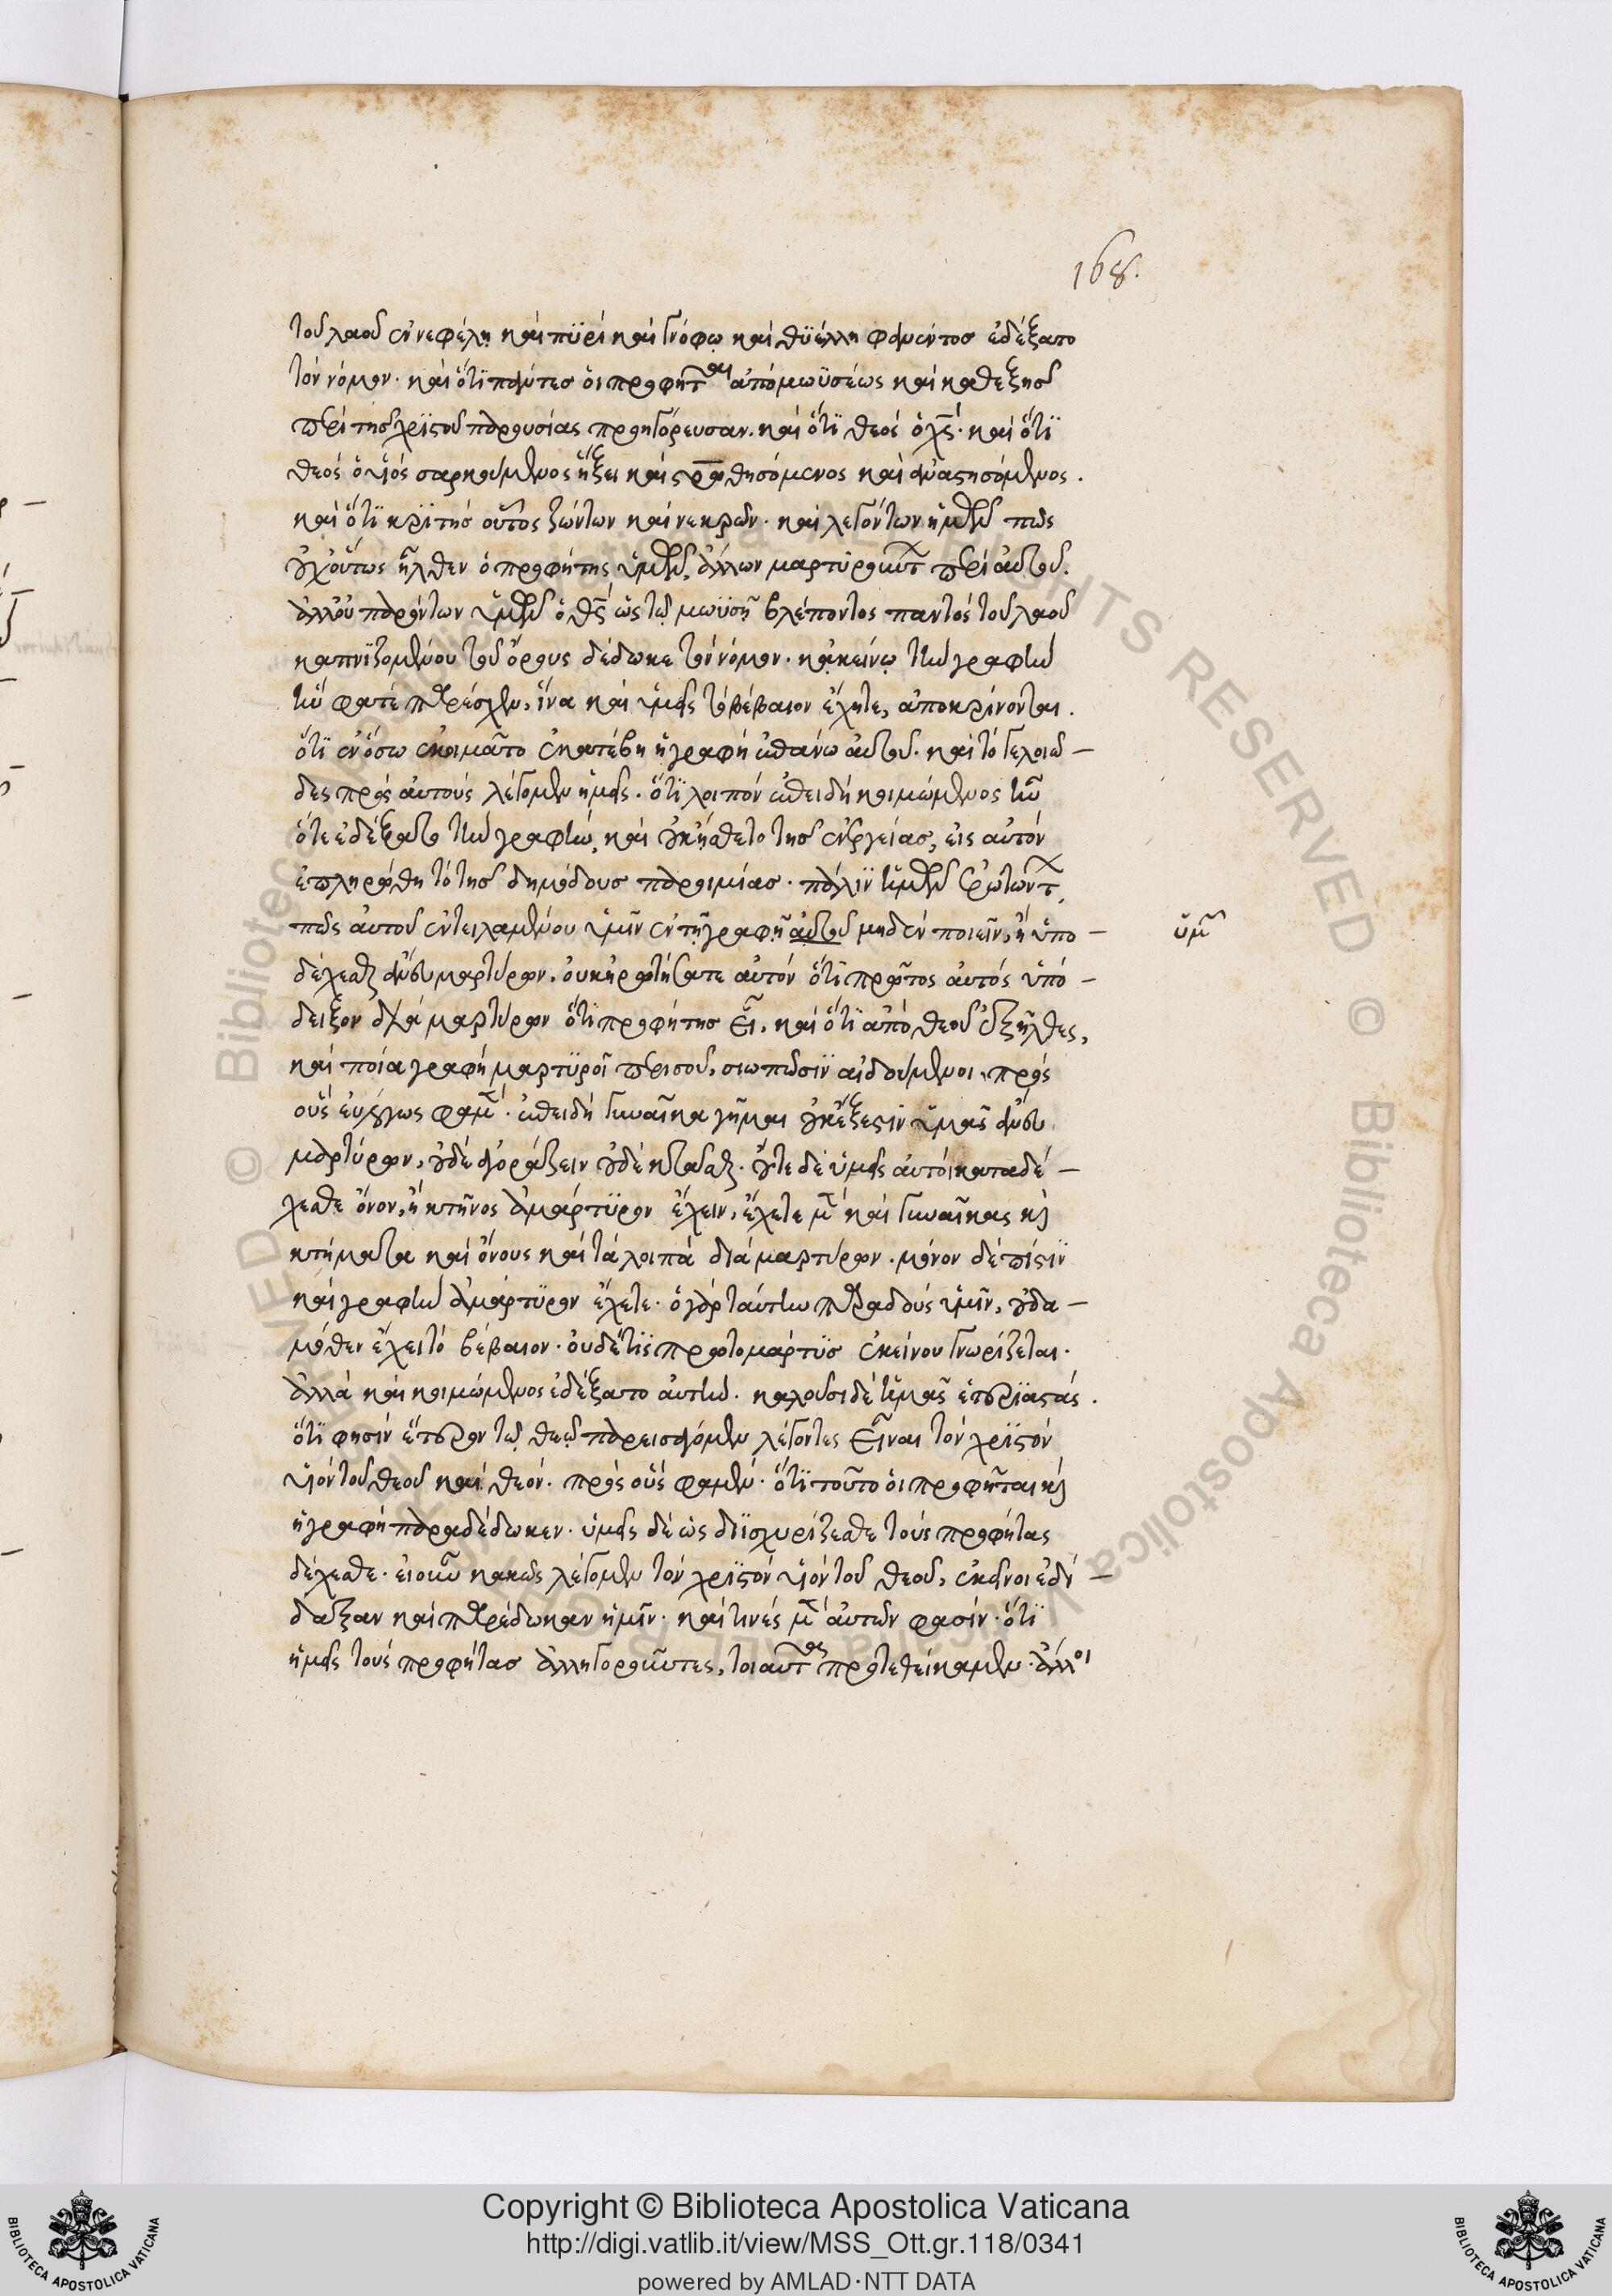 168.
τοῦ λαοῦ ἐν νεφέλῃ καὶ πϋρὶ καὶ γνόφῳ καὶ θϋέλλη φανέντος ἐδέξατο
τὸν νόμον· καὶ ὅτϊ πάντες οἱ προφῆται ἀπὸ μωϋσέως καὶ καθεξῆς
περὶ τῆς χρϊστοῦ παρουσίας προηγόρευσαν. καὶ ὅτϊ θεὸς ὁ χς· καὶ ὅτϊ
θεὸς ὁ υἱὸς σαρκούμενος ἥξει καὶ στρωθησόμενος καὶ ἀναστησόμενος.
καὶ ὅτϊ κρϊτὴς οὗτος ζώντων καὶ νεκρῶν· καὶ λεγόντων ἡμῶν πῶς
οὐχ οὕτως ἦλθεν ὁ προφήτης ὑμῶν, ἄλλων μαρτυρούντων περὶ αὐτοῦ.
ἀλλ' οὐ παρόντων ὑμῶν ὁ θς ὡς τῷ μωϋσῇ βλέποντος παντὸς τοῦ λαοῦ
καπνϊζομένου τοῦ ὄρους δέδωκε τὸν νόμον· κἀκείνῳ τὴν γραφὴν
ἣν φατὲ παρέσχεν, ἵνα καὶ ὑμεῖς τὸ βέβαιον ἔχητε, ἀποκρίνονται.
ὅτϊ ἐν ὅσω ἐκοιμᾶτο ἐκατέβη ἡ γραφὴ ἐπάνω αὐτοῦ· καὶ τὸ γελοιῶ–
δες πρὸς αὐτοὺς λέγομεν ἡμεῖς· ὅτϊ λοιπὸν ἐπειδὴ κοιμώμενος ἦν
ὅτε ἐδέξατο τὴν γραφὴν, καὶ οὐκ ἤσθετο τῆς ἐνεργείας, εἰς αὐτὸν
ἐπληρώθη τὸ τῆς δημώδους παροιμίας· πάλϊν ἡμῶν ἐρωτώντων,
πῶς αὐτοῦ ἐντειλαμένου ὑμῖν ἐν τῇ γραφῇ αὐτοῦ μηδὲν ποιεῖν, ἢ ὑπο–
ὑμ
δέχεσθαι ἄνευ μαρτύρων, οὐκ ἠρωτήσατε αὐτὸν ὅτϊ πρῶτος αὐτὸς ὑπό–
δειξον διὰ μαρτύρων ὅτϊ προφήτης εἶ, καὶ ὅτϊ ἀπὸ θεοῦ ἐξῆλθες,
καὶ ποία γραφὴ μαρτϋροῖ περὶ σοῦ, σιωπῶσϊν αἰδούμενοι. πρὸς
οὓς εὐλόγως φαμὲν· ἐπειδὴ γυναῖκα γῆμαι οὐκ ἔξεστϊν ὑμᾶς ἄνευ
μαρτύρων, οὐδὲ ἀγοράζειν οὐδὲ κτᾶσθαι· οὔτε δὲ ὑμεῖς αὐτοὶ καταδέ–
χεσθε ὄνον, ἢ κτῆνος ἀμάρτϋρον ἔχειν, ἔχετε μὲν καὶ γυναῖκας καὶ
κτήματα καὶ ὄνους καὶ τὰ λοιπὰ διὰ μαρτύρων· μόνον δὲ πίστϊν
καὶ γραφὴν ἀμάρτϋρον ἔχετε· ὁ γὰρ ταύτην παραδοὺς ὑμῖν, οὐδα–
μόθεν ἔχει τὸ βέβαιον· οὐδέ τϊς πρωτομάρτϋς ἐκείνου γνωρίζεται·
ἀλλὰ καὶ κοιμώμενος ἐδέξατο αὐτὴν. καλοῦσι δὲ ἡμᾶς ἑτερϊαστάς.
ὅτϊ φησὶν ἕτερον τῷ θεῷ παρεισάγομεν λέγοντες εἶναι τὸν χρϊστὸν
υἱὸν τοῦ θεοῦ καὶ θεόν. πρὸς οὓς φαμὲν· ὅτϊ τοῦτο οἱ προφῆται καὶ
ἡ γραφὴ παραδέδωκεν· ὑμεῖς δὲ ὡς διϊσχυρίζεσθε τοὺς προφήτας
δέχεσθε· εἰ οὖν κακῶς λέγομεν τὸν χρϊστὸν υἱὸν τοῦ θεοῦ, ἐκεῖνοι ἐδί–
δαξαν καὶ παρέδωκαν ἡμῖν· καὶ τινὲς μὲν αὐτῶν φασὶν· ὅτϊ
ἡμεῖς τοὺς προφήτας ἀλληγοροῦντες, τοιαῦτα προτεθείκαμεν. ἄλλοι
Copyright © Biblioteca Apostolica Vaticana
http://digi.vatlib.it/view/MSS_Ott.gr.118/0341
powered by AMLAD·NTT DATA